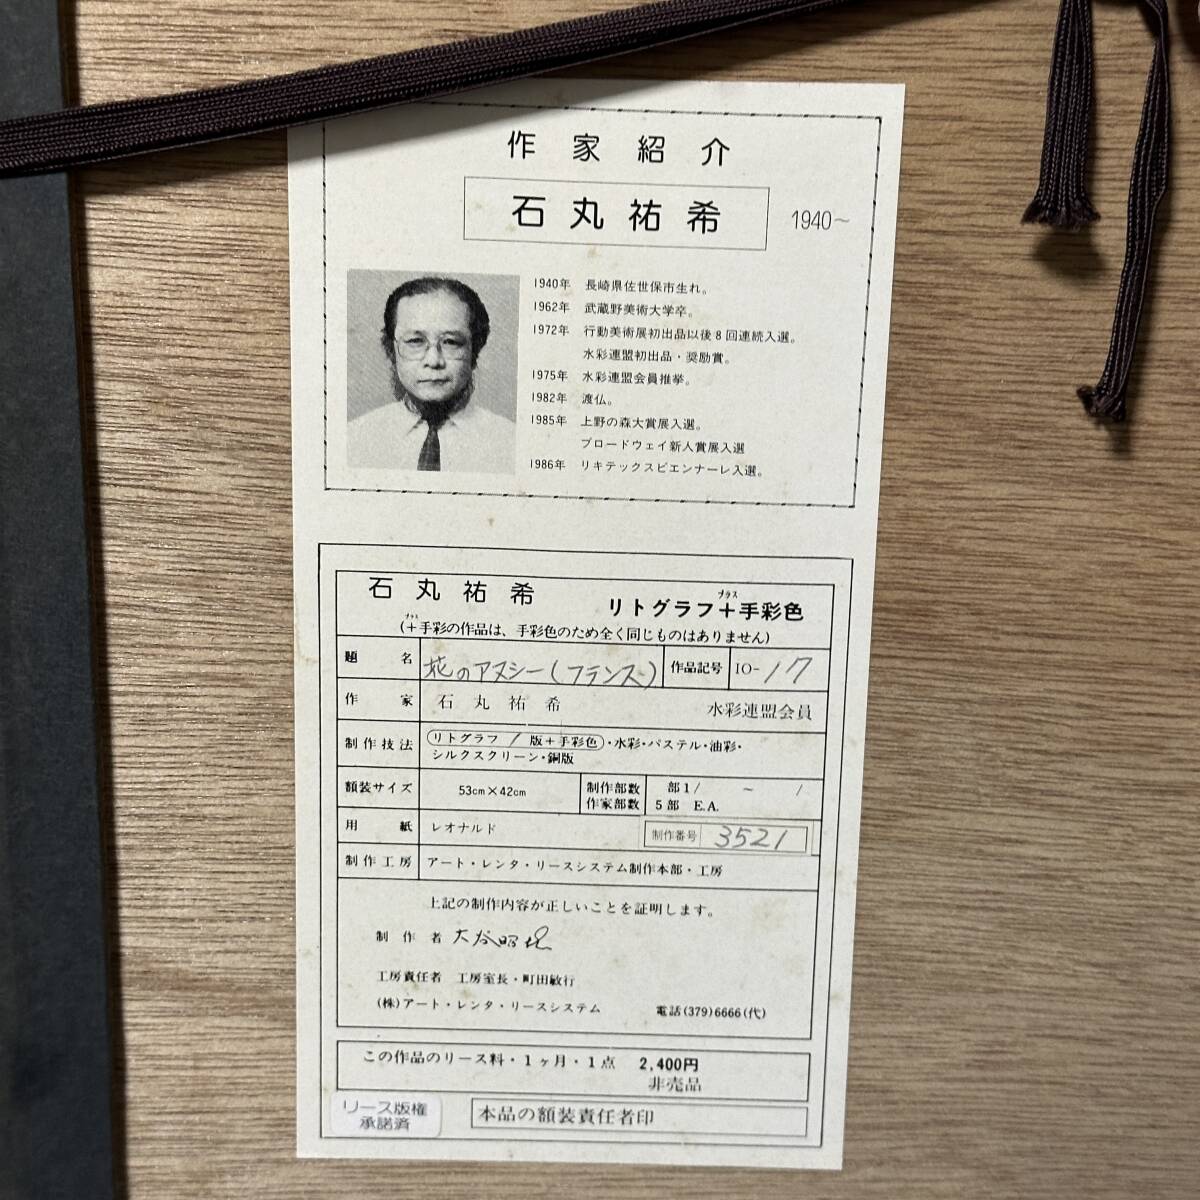 作家紹介
石丸祐希 1940〜
1940年 長崎県佐世保市生れ。
1962年 武蔵野美術大学卒。
1972年 行動美術展初出品以後8回連続入選。
水彩連盟初出品・奨励賞。
1975年 水彩連盟会員推挙。
1982年 渡仏。
1985年 上野の森大賞展入選。
ブロードウェイ新人賞展入選
1986年 リキテックスビエンナーレ入選。
石丸祐希 リトグラフ+手彩色
プラス
(+手彩の作品は、手彩色のため全く同じものはありません)
プラス
題名 花のアヌシー(フランス) 作品記号 IO-17
作家 石丸祐希 水彩連盟会員
制作技法 リトグラフ / 版+手彩色・水彩・パステル・油彩・
シルクスクリーン・銅版
額装サイズ 53cm×42cm 制作部数 部1/ 〜 /
作家部数 5部 E.A.
用紙 レオナルド 制作番号 3521
制作工房 アート・レンタ・リースシステム制作本部・工房
上記の制作内容が正しいことを証明します。
制作者 大谷昭
工房責任者 工房室長・町田敏行
(株)アート・レンタ・リースシステム 電話(379)6666(代)
この作品のリース料・1ヶ月・1点 2,400円
非売品
リース版権
承諾済
本品の額装責任者印